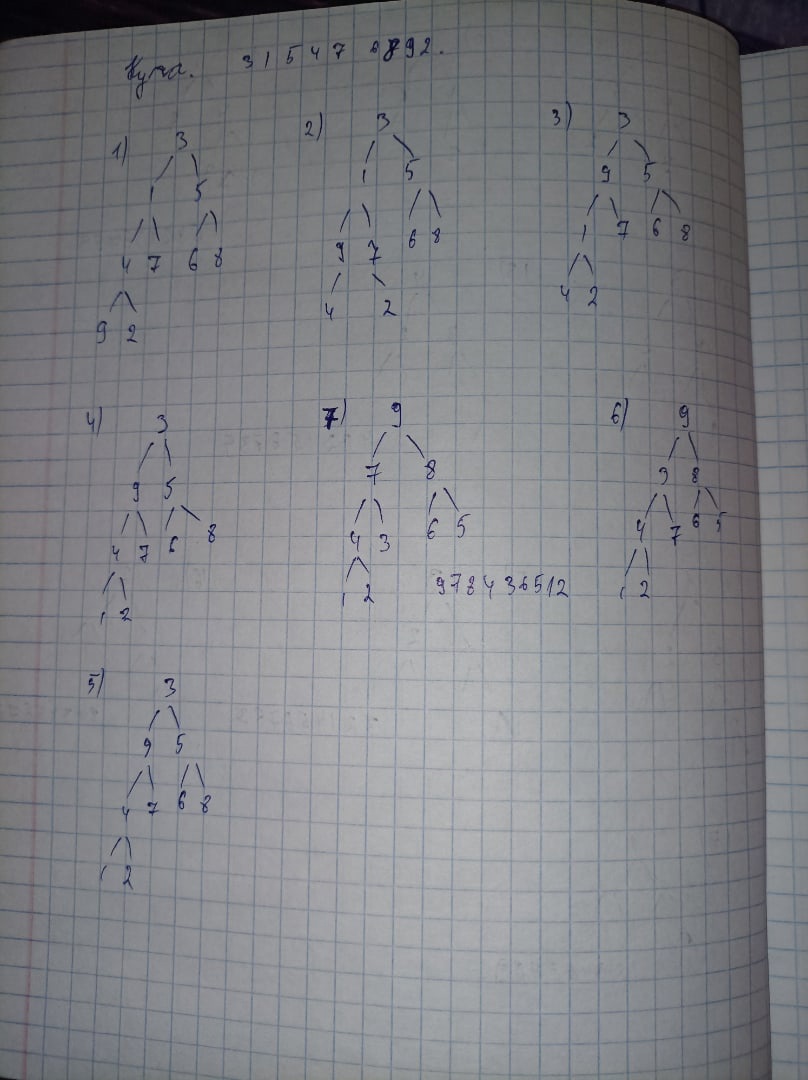 Куча. 3 1 5 4 7 6 8 9 2.
1) 3
1 5
4 7 6 8
9 2
2) 3
1 5
9 7 6 8
4 2
3) 3
9 5
1 7 6 8
4 2
4) 3
9 5
4 7 6 8
1 2
7) 9
7 8
4 3 6 5
1 2
978436512
6) 9
3 8
4 7 6 5
1 2
5) 3
9 5
4 7 6 8
1 2